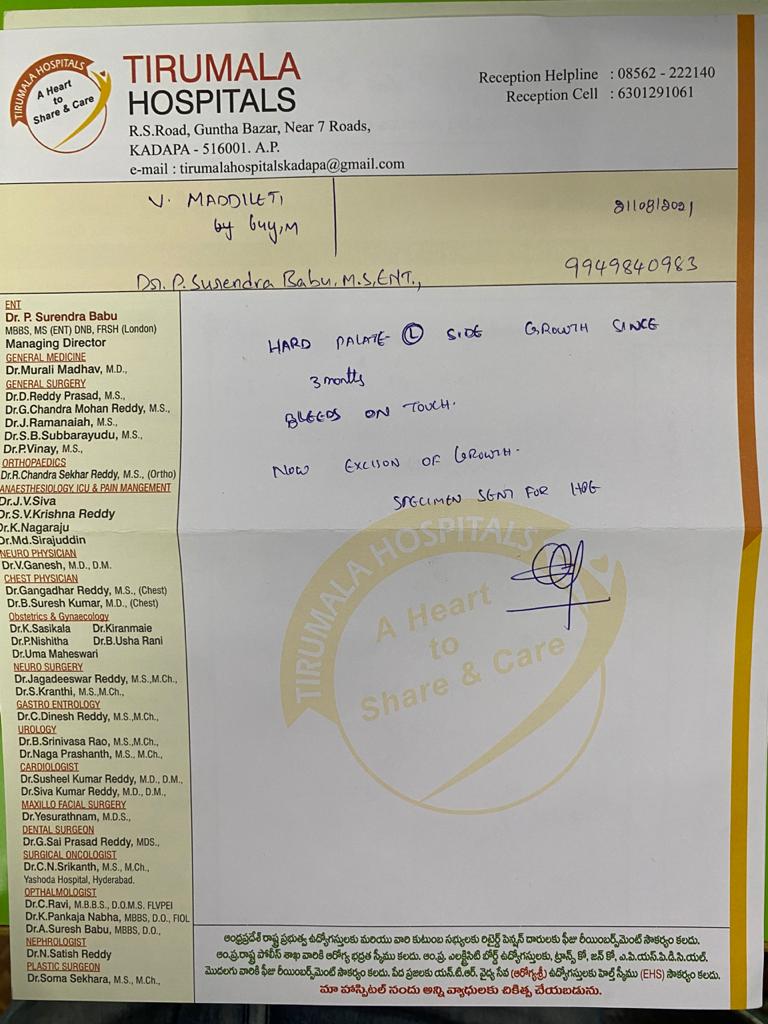 TIRUMALA HOSPITALS
A Heart
to
Share & Care
TIRUMALA
HOSPITALS
R.S.Road, Guntha Bazar, Near 7 Roads,
KADAPA - 516001. A.P.
e-mail : tirumalahospitalskadapa@gmail.com
Reception Helpline : 08562 - 222140
Reception Cell : 6301291061
V. MADDILETI
/08/2021
Dr. P. Surendra Babu, M.S,ENT.,
9949840983
ENT
Dr. P. Surendra Babu
MBBS, MS (ENT) DNB, FRSH (London)
Managing Director
GENERAL MEDICINE
Dr.Murali Madhav, M.D.,
GENERAL SURGERY
Dr.D.Reddy Prasad, M.S.,
Dr.G.Chandra Mohan Reddy, M.S.,
Dr.J.Ramanaiah, M.S.,
Dr.S.B.Subbarayudu, M.S.,
Dr.P.Vinay, M.S.,
ORTHOPAEDICS
Dr.R.Chandra Sekhar Reddy, M.S., (Ortho)
ANAESTHESIOLOGY, ICU & PAIN MANGEMENT
Dr.J.V.Siva
Dr.S.V.Krishna Reddy
Dr.K.Nagaraju
Dr.Md.Sirajuddin
NEURO PHYSICIAN
Dr.V.Ganesh, M.D., D.M.
CHEST PHYSICIAN
Dr.Gangadhar Reddy, M.S., (Chest)
Dr.B.Suresh Kumar, M.D., (Chest)
Obstetrics & Gynaecology
Dr.K.Sasikala Dr.Kiranmaie
Dr.P.Nishitha Dr.B.Usha Rani
Dr.Uma Maheswari
NEURO SURGERY
Dr.Jagadeeswar Reddy, M.S.,M.Ch.,
Dr.S.Kranthi, M.S.,M.Ch.,
GASTRO ENTROLOGY
Dr.C.Dinesh Reddy, M.S.,M.Ch.,
UROLOGY
Dr.B.Srinivasa Rao, M.S.,M.Ch.,
Dr.Naga Prashanth, M.S., M.Ch.,
CARDIOLOGIST
Dr.Susheel Kumar Reddy, M.D., D.M.,
Dr.Siva Kumar Reddy, M.D., D.M.,
MAXILLO FACIAL SURGERY
Dr.Yesurathnam, M.D.S.,
DENTAL SURGEON
Dr.G.Sai Prasad Reddy, MDS.,
SURGICAL ONCOLOGIST
Dr.C.N.Srikanth, M.S., M.Ch.,
Yashoda Hospital, Hyderabad.
OPTHALMOLOGIST
Dr.C.Ravi, M.B.B.S., D.O.M.S. FLVPEI
Dr.K.Pankaja Nabha, MBBS, D.O., FIOL
Dr.A.Suresh Babu, MBBS, D.O.,
NEPHROLOGIST
Dr.N.Satish Reddy
PLASTIC SURGEON
Dr.Soma Sekhara, M.S., M.Ch.,
HARD PALATE Ⓛ SIDE GROWTH SINCE
3 months
BLEEDS ON TOUCH.
NOW EXCISON OF GROWTH.
SPECIMEN SENT FOR HPE
TIRUMALA HOSPITALS
A Heart
to
Share & Care
ఆంధ్రప్రదేశ్ రాష్ట్ర ప్రభుత్వ ఉద్యోగస్తులకు మరియు వారి కుటుంబ సభ్యులకు రిటైర్డ్ పెన్షన్ దారులకు ఫీజు రీయింబర్స్‌మెంట్ సౌకర్యం కలదు.
ఆం.ప్ర.రాష్ట్ర పోలీస్ శాఖ వారికి ఆరోగ్య భద్రత స్కీము కలదు. ఆం.ప్ర. ఎలక్ట్రిసిటి బోర్డ్ ఉద్యోగస్తులకు, ట్రాన్స్ కో, జన్ కో, ఎ.పి.యస్.పి.డి.సి.యల్.
మొదలుగు వారికి ఫీజు రీయింబర్స్‌మెంట్ సౌకర్యం కలదు. పేద ప్రజలకు యన్.టి.ఆర్. వైద్య సేవ (ఆరోగ్యశ్రీ) ఉద్యోగస్తులకు హెల్త్ స్కీము (EHS) సౌకర్యం కలదు.
మా హాస్పిటల్ నందు అన్ని వ్యాధులకు చికిత్స చేయబడును.